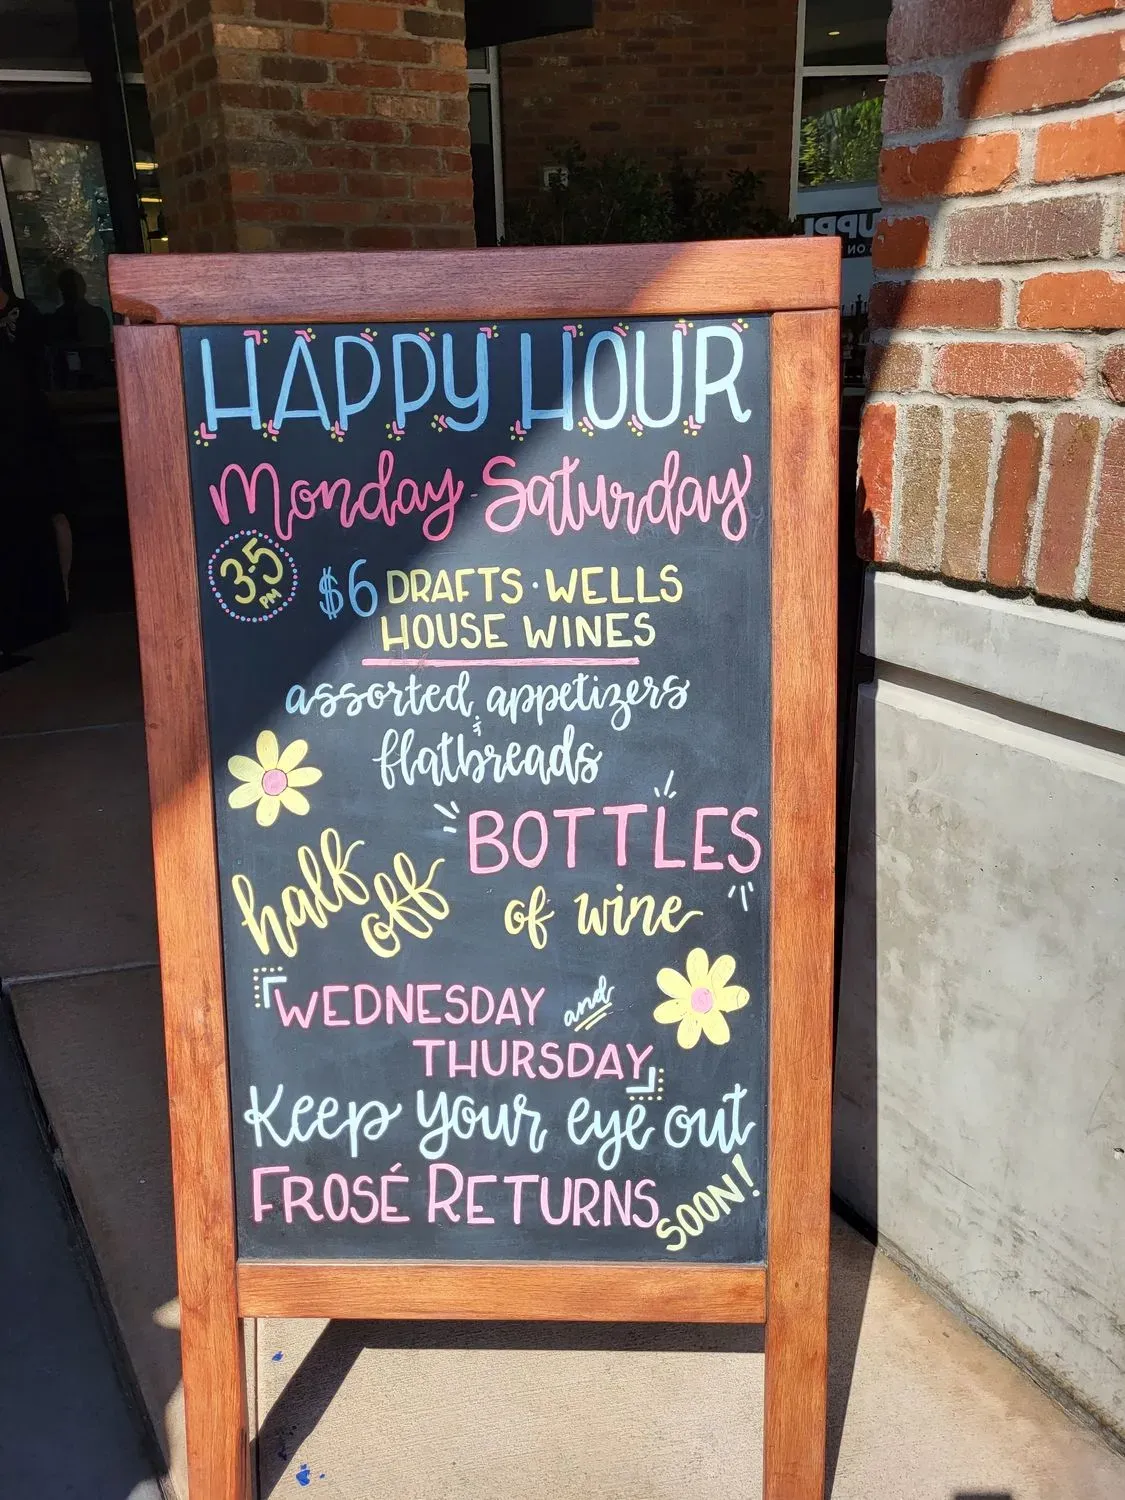 HAPPY HOUR
Monday - Saturday
3-5 PM
$6 DRAFTS · WELLS
HOUSE WINES
assorted appetizers
&
flatbreads
half off
BOTTLES
of wine
WEDNESDAY and
THURSDAY
Keep your eye out
FROSÉ RETURNS
SOON!